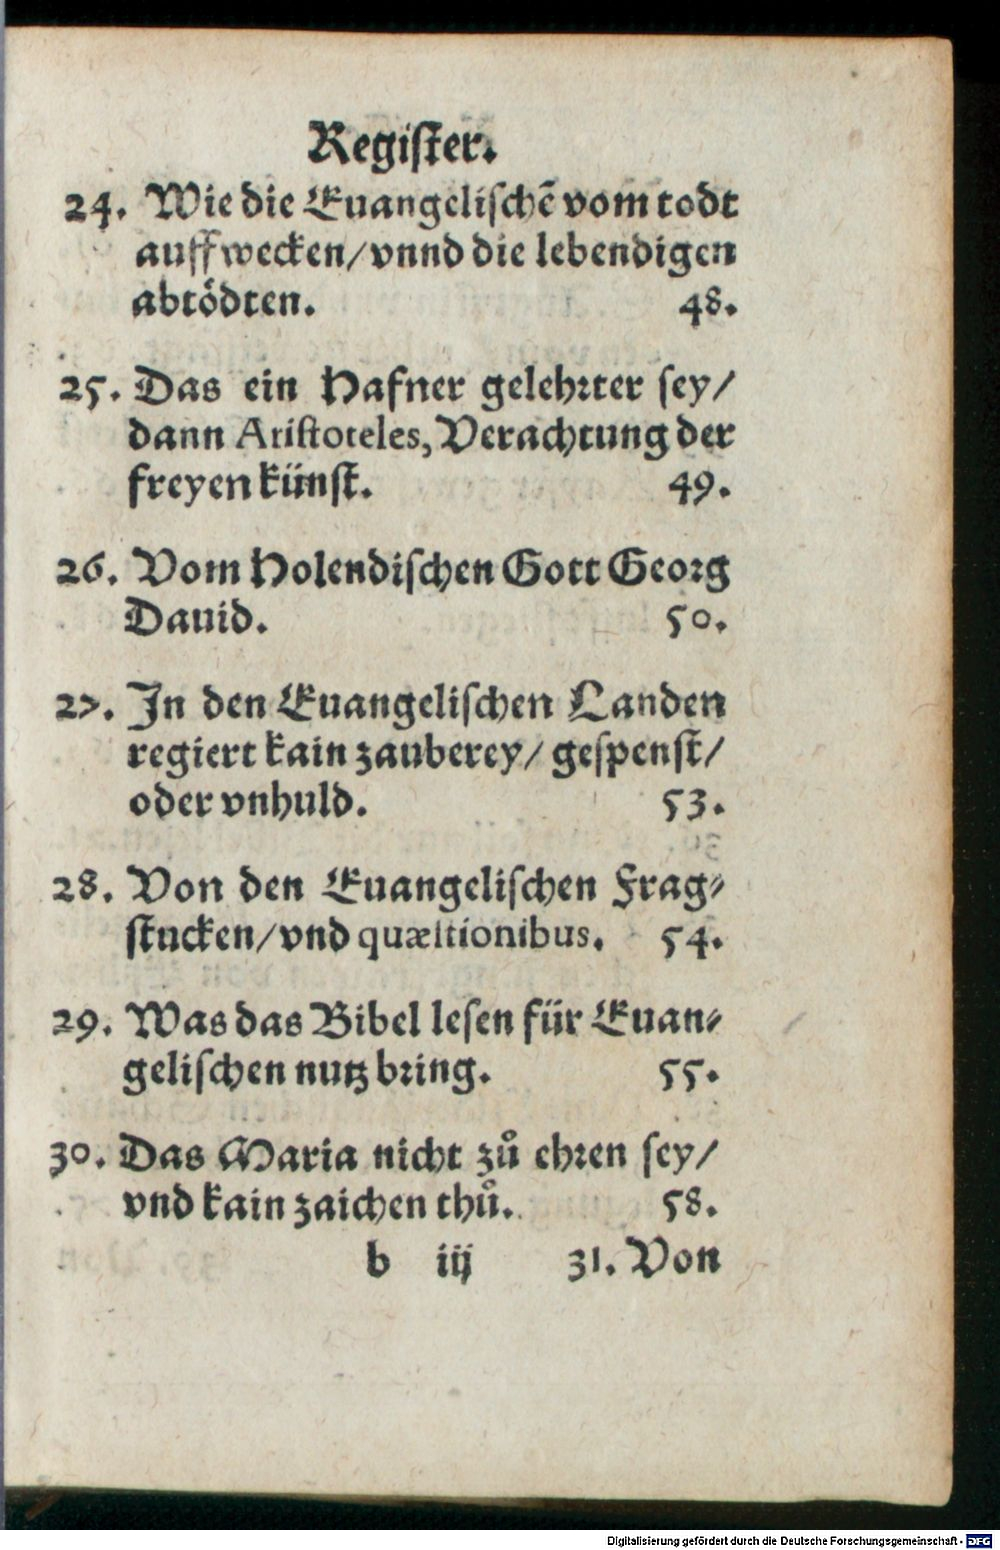 Register.
24. Wie die Euangelischē vom todt
auffwecken/vnnd die lebendigen
abtödten. 48.
25. Das ein Hafner gelehrter sey/
dann Aristoteles, Verachtung der
freyen künst. 49.
26. Vom Holendischen Gott Georg
Dauid. 50.
27. In den Euangelischen Landen
regiert kain zauberey/ gespenst/
oder vnhuld. 53.
28. Von den Euangelischen Frag⸗
stucken/vnd quæstionibus. 54.
29. Was das Bibel lesen für Euan⸗
gelischen nutz bring. 55.
30. Das Maria nicht zů ehren sey/
vnd kain zaichen thů. 58.
b iij 31. Von
Digitalisierung gefördert durch die Deutsche Forschungsgemeinschaft - DFG